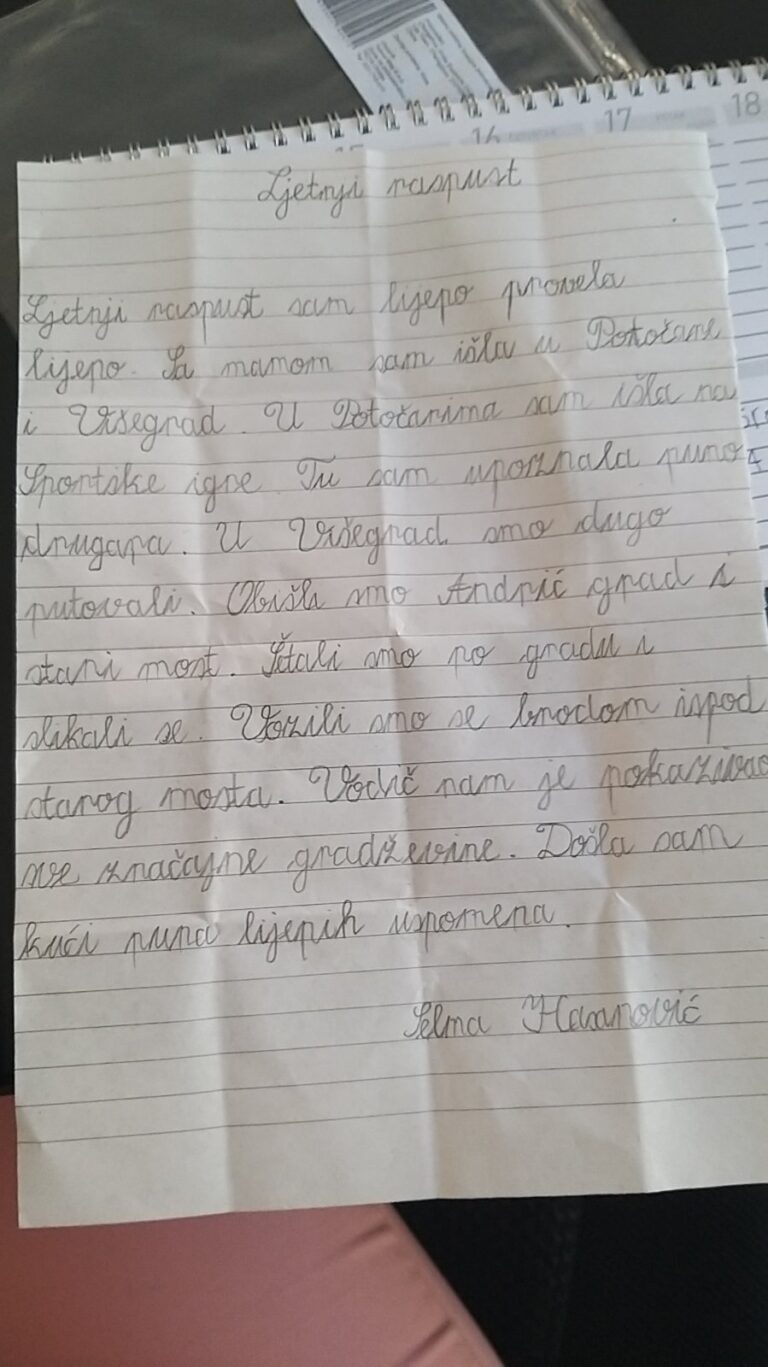 16
17
18
Ljetnji raspust
Ljetnji raspust sam lijepo provela
lijepo. Sa mamom sam išla u Potočane
i Višegrad. U Potočarima sam išla na
Sportske igre Tu sam upoznala puno
drugara. U Višegrad smo dugo
putovali. Obišli smo Andrić grad i
stari most. Šetali smo po gradu i
slikali se. Vozili smo se brodom ispod
starog mosta. Vodič nam je pokazivao
sve značajne gradževine. Došla sam
kući puna lijepih uspomena.
Selma Hasanović